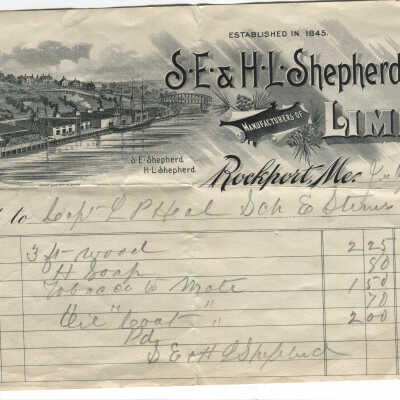 ESTABLISHED IN 1845.
S·E·& H·L·Shepherd
MANUFACTURERS OF
LIM
S·E·Shepherd.
H·L·Shepherd.
Rockport, Me. July
to Capt L P Heal Sch E Sterns
3 ft wood 2 25
H Soap 80
Tobacco to Mate 1 50
" " 70
Oil Coat " 2 00
Pd.
S E & H L Shepherd